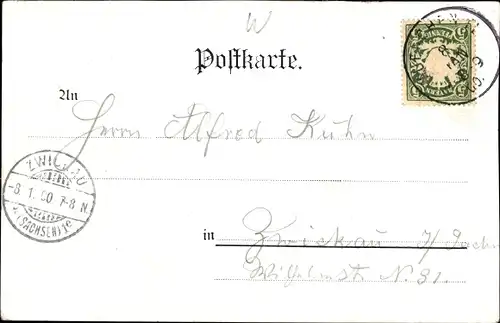 W
Postkarte.
An
Herrn Alfred Kühn
ZWICKAU
-8.1.00 7-8 N.
(SACHSEN) 1c
in Zwickau i/Sachs
Wilhelmstr. N. 31.